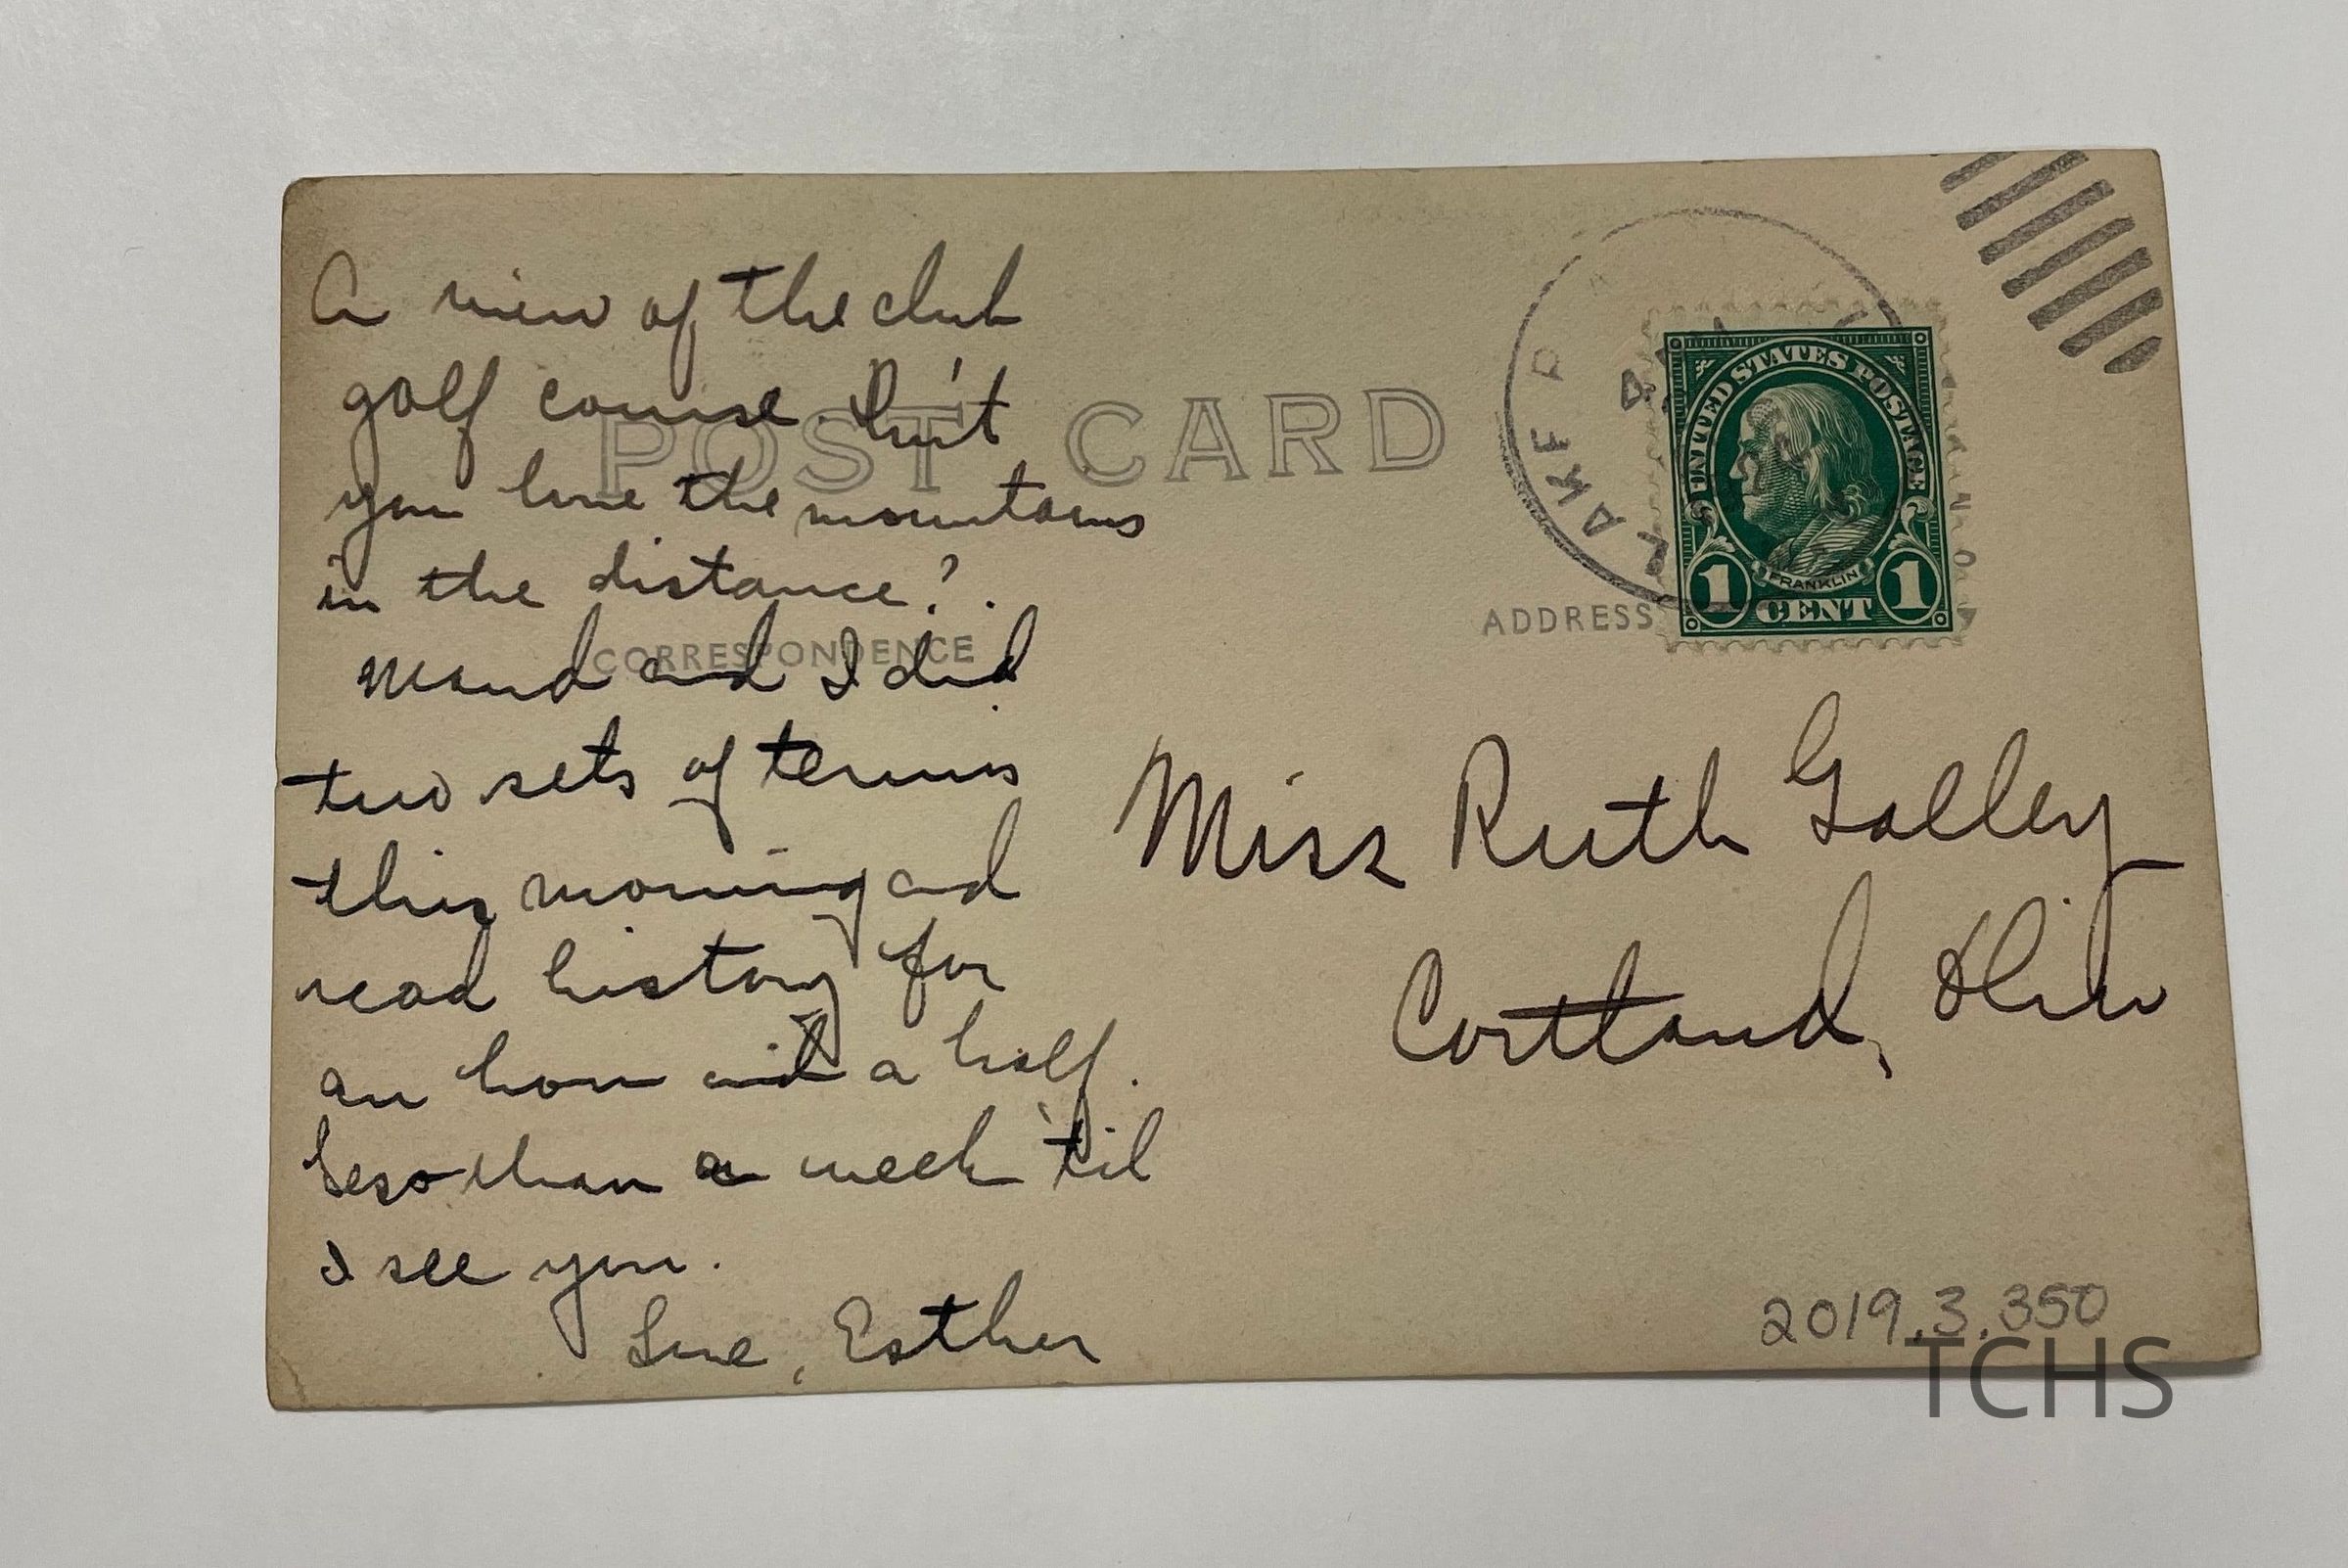 A view of the club
golf course. Don't
you love the mountains
in the distance?
Maud and I did
two sets of tennis
this morning and
read history for
an hour and a half.
Less than a week 'til
I see you.
Love, Esther
POST CARD
CORRESPONDENCE
ADDRESS
LAKE P
UNITED STATES POSTAGE
FRANKLIN
1 CENT 1
Miss Ruth Galley
Cortland, Ohio
2019.3.350
TCHS